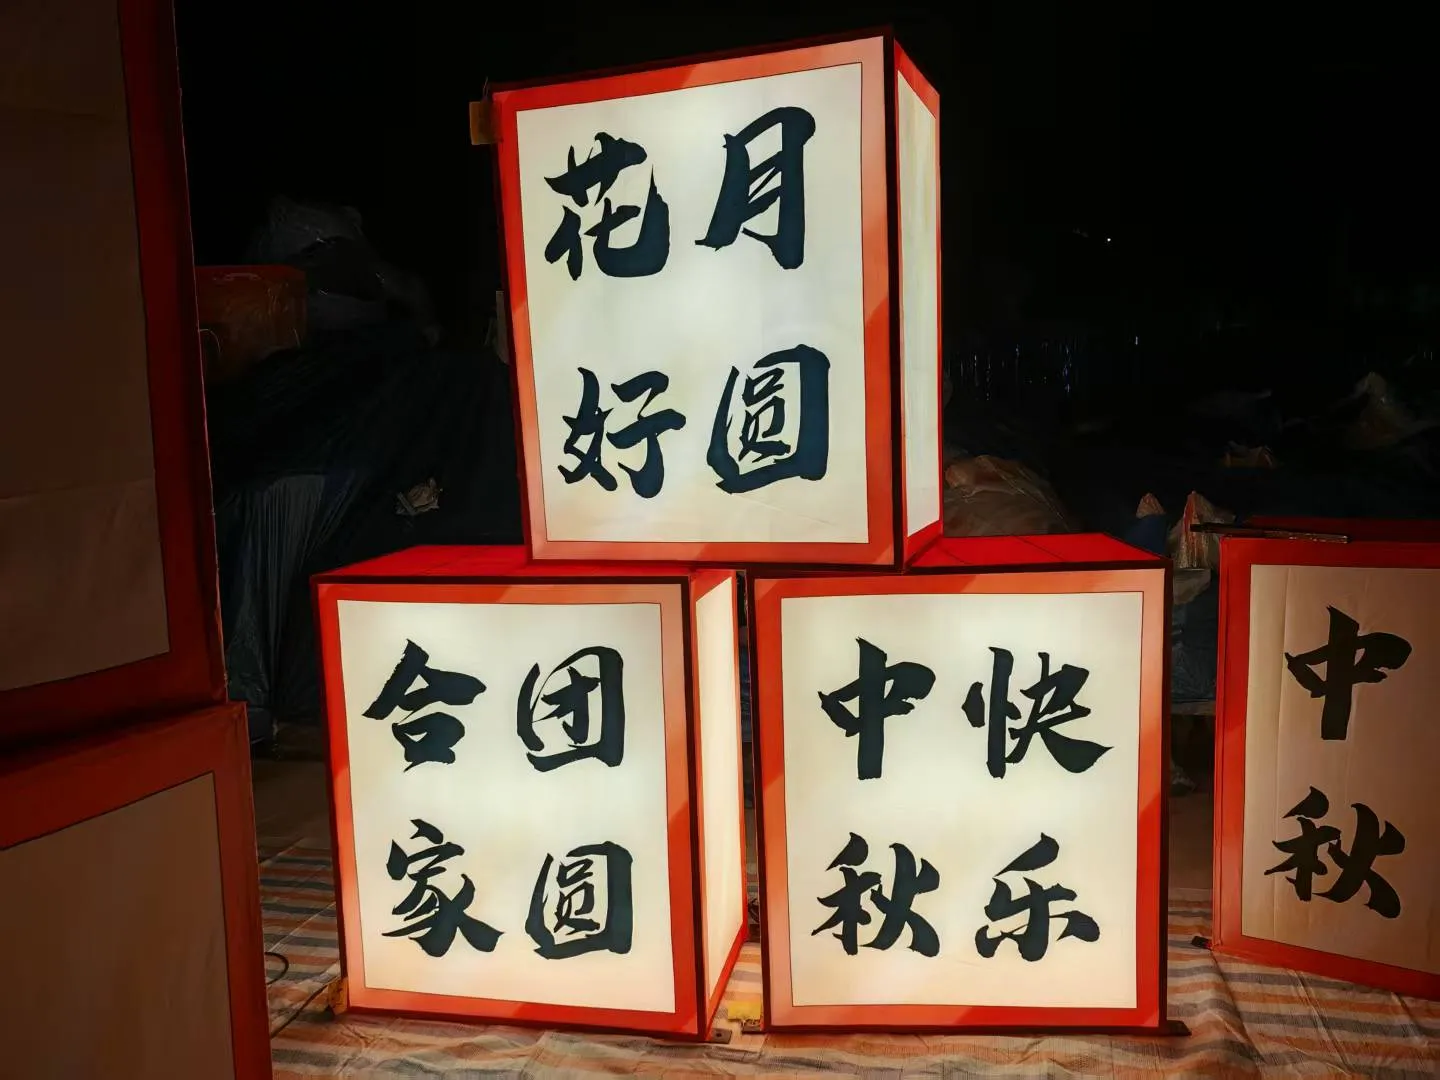 花好
月圆
合家
团圆
中秋
快乐
中秋